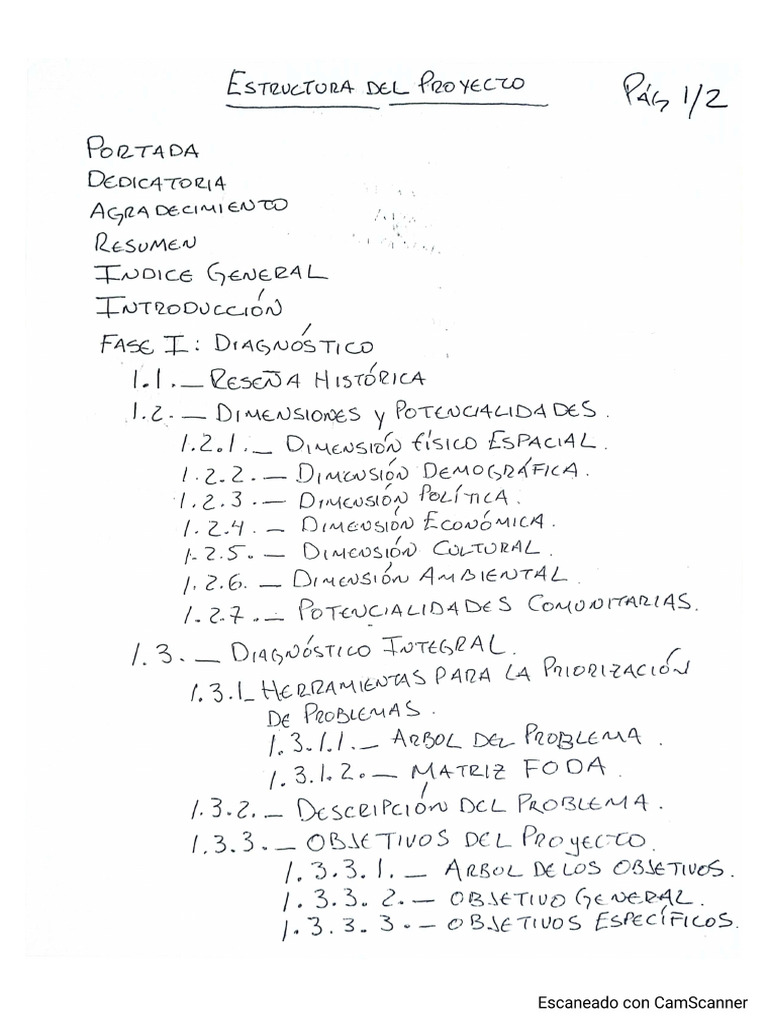 ESTRUCTURA DEL PROYECTO
PÁG 1/2
PORTADA
DEDICATORIA
AGRADECIMIENTO
RESUMEN
INDICE GENERAL
INTRODUCCIÓN
FASE I: DIAGNÓSTICO
1.1._ RESEÑA HISTÓRICA
1.2._ DIMENSIONES Y POTENCIALIDADES.
1.2.1._ DIMENSIÓN FÍSICO ESPACIAL.
1.2.2._ DIMENSIÓN DEMOGRÁFICA.
1.2.3._ DIMENSIÓN POLÍTICA.
1.2.4._ DIMENSIÓN ECONÓMICA.
1.2.5._ DIMENSIÓN CULTURAL.
1.2.6._ DIMENSIÓN AMBIENTAL.
1.2.7._ POTENCIALIDADES COMUNITARIAS.
1.3._ DIAGNÓSTICO INTEGRAL.
1.3.1_ HERRAMIENTAS PARA LA PRIORIZACIÓN
DE PROBLEMAS.
1.3.1.1._ ARBOL DEL PROBLEMA.
1.3.1.2._ MATRIZ FODA.
1.3.2._ DESCRIPCIÓN DEL PROBLEMA.
1.3.3._ OBJETIVOS DEL PROYECTO.
1.3.3.1._ ARBOL DE LOS OBJETIVOS.
1.3.3.2._ OBJETIVO GENERAL.
1.3.3.3._ OBJETIVOS ESPECÍFICOS.
Escaneado con CamScanner